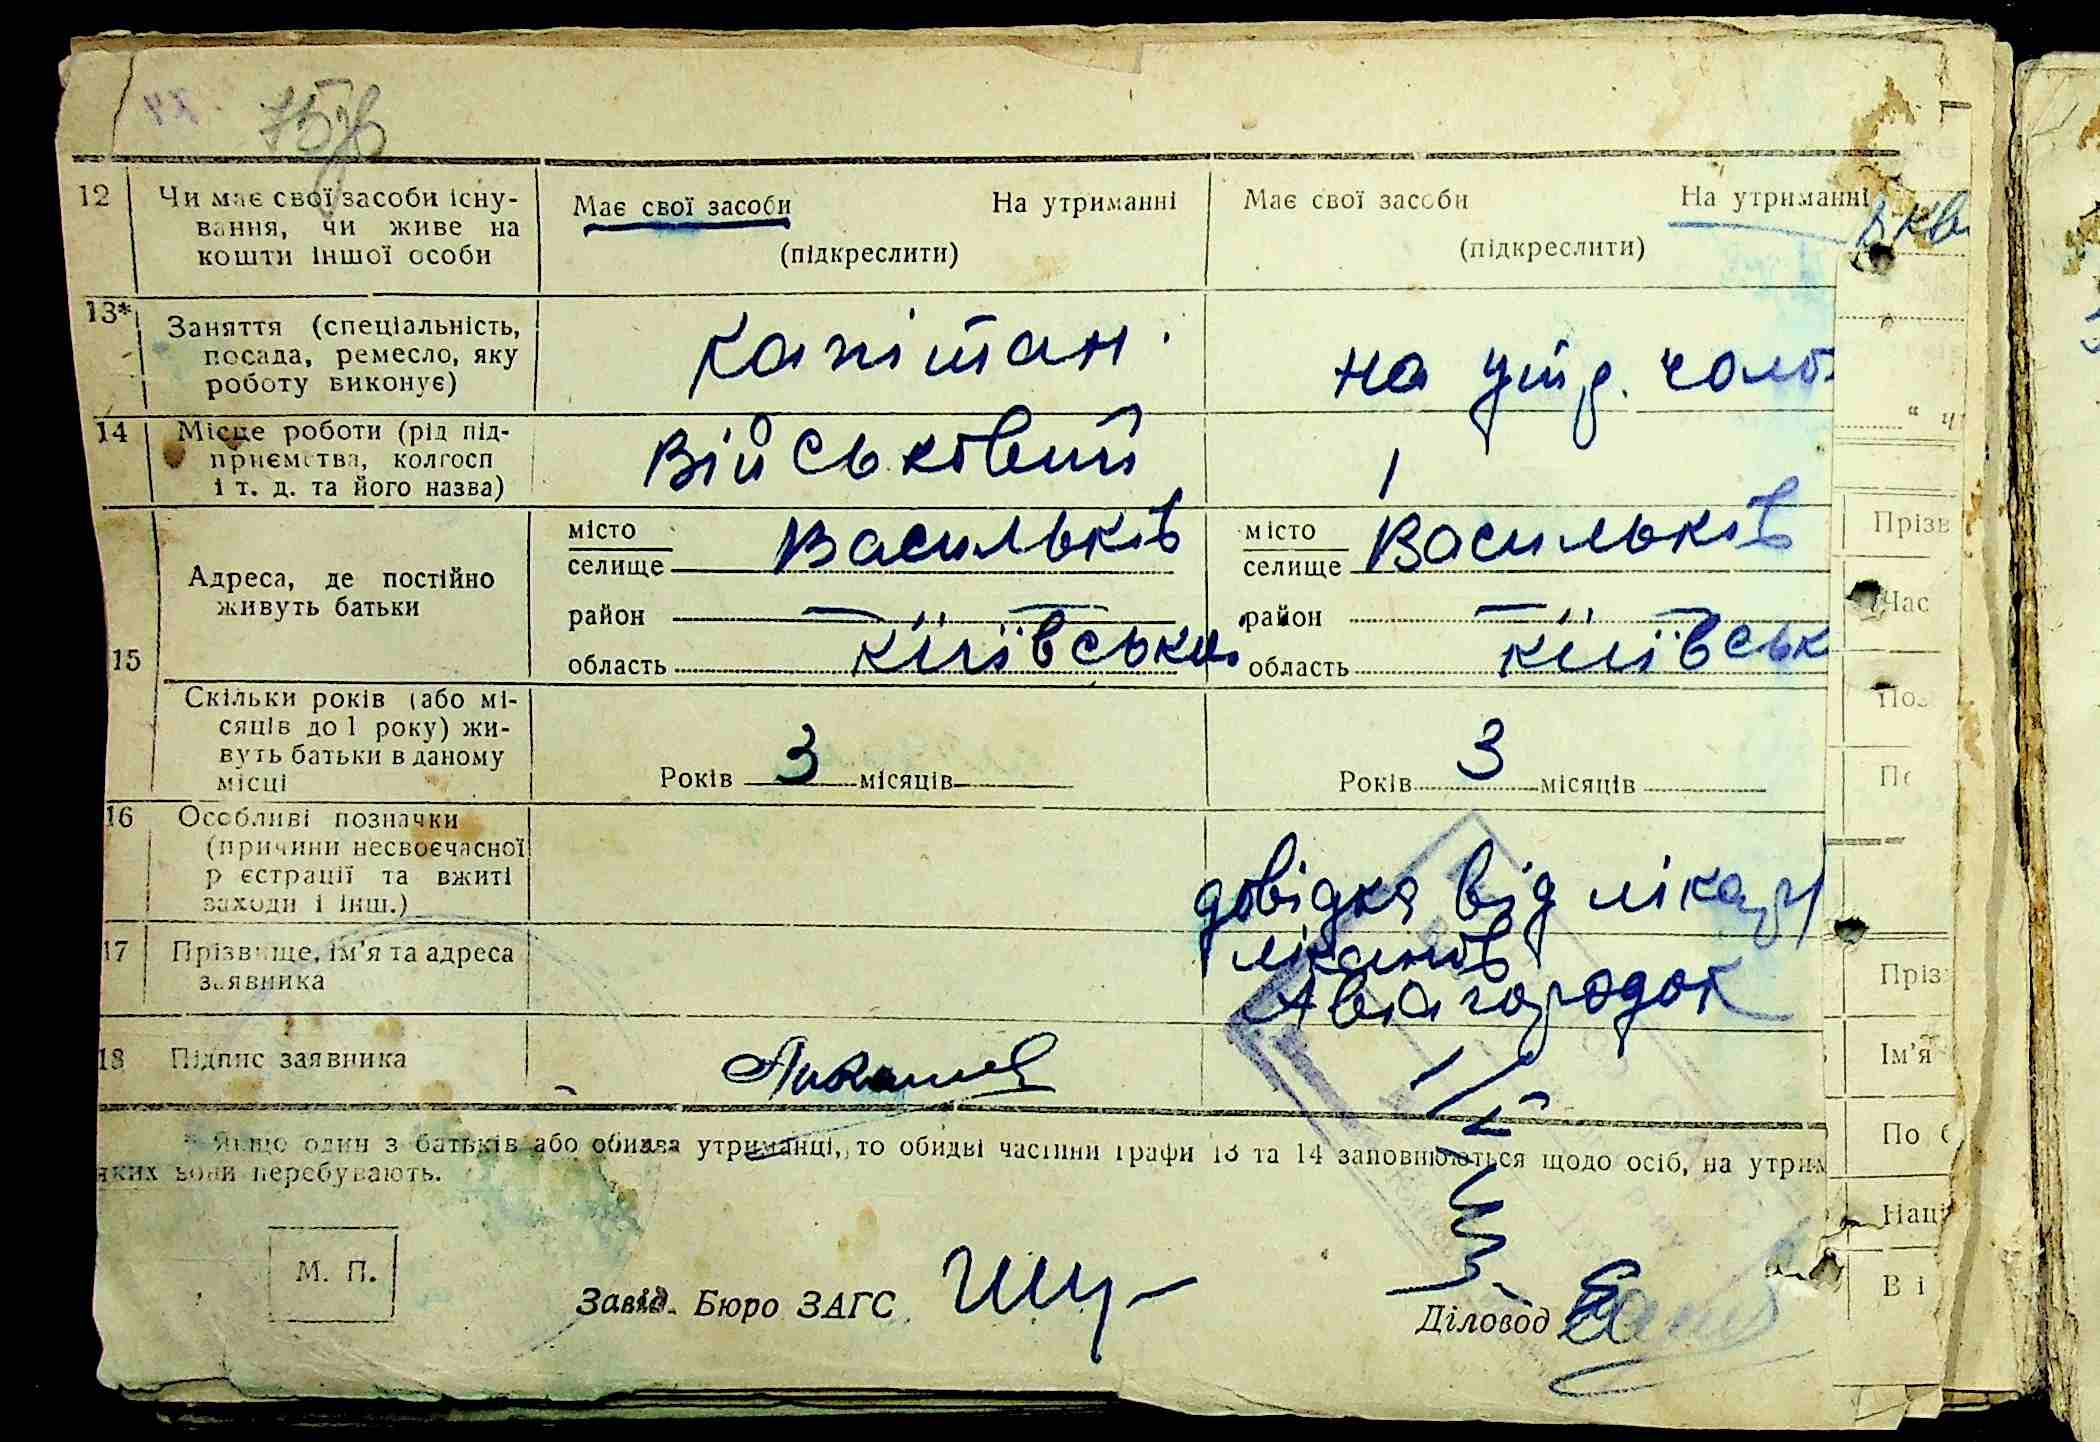 12 Чи має свої засоби існу- Має свої засоби На утриманні Має свої засоби На утриманні
вання, чи живе на
кошти іншої особи (підкреслити) (підкреслити)
13* Заняття (спеціальність, капітан на утр. чолов
посада, ремесло, яку
роботу виконує)
14 Місце роботи (рід під- Військовий
приємства, колгосп
і т. д. та його назва)
15 Адреса, де постійно місто Васильків місто Васильків
живуть батьки селище селище
район район
область київська область київськ
Скільки років (або мі-
сяців до 1 року) жи-
вуть батьки в даному
місці Років 3 місяців Років 3 місяців
16 Особливі позначки довідка від лікар
(причини несвоєчасної
реєстрації та вжиті
заходи і інш.)
17 Прізвище, ім'я та адреса
заявника Авіагородок
18 Підпис заявника
* Якщо один з батьків або обидва утриманці, то обидві частини графи 13 та 14 заповнюються щодо осіб, на утрим
яких вони перебувають.
М. П.
Завід. Бюро ЗАГС Діловод
Прізв
Час
По
Пріз
Ім'я
По б
Наці
Ві